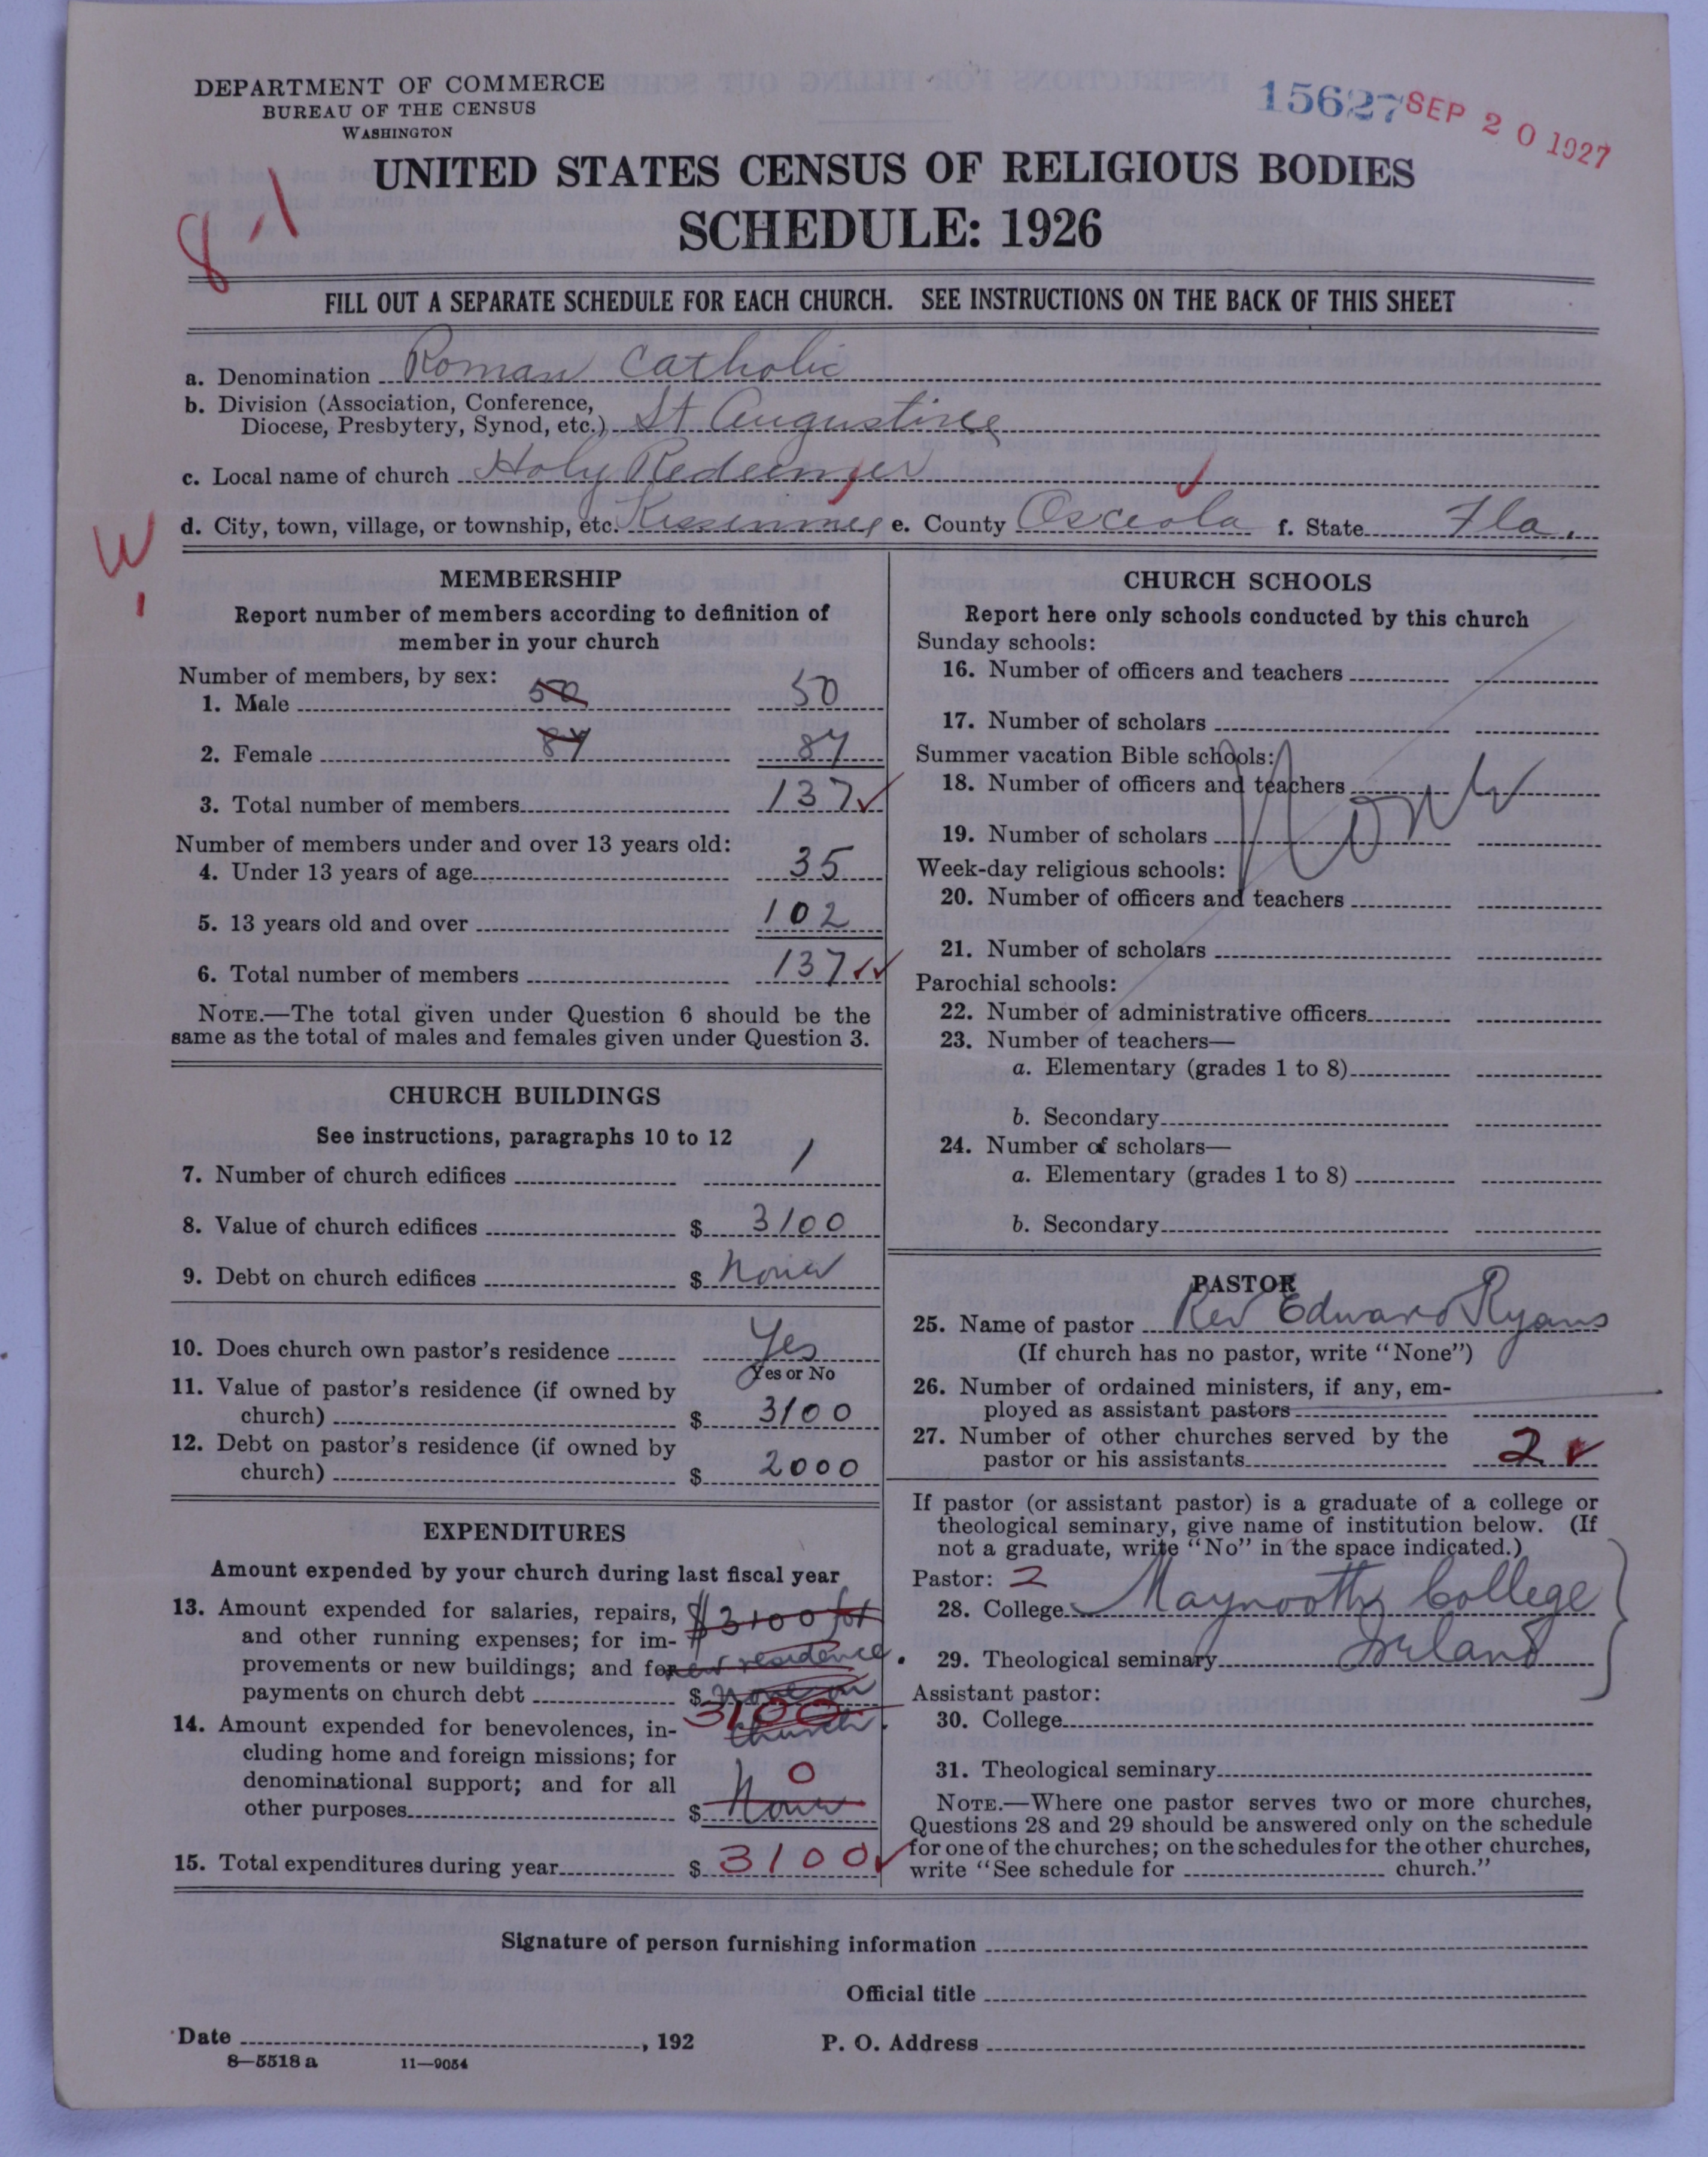 DEPARTMENT OF COMMERCE
BUREAU OF THE CENSUS
WASHINGTON
15627 SEP 20 1927
UNITED STATES CENSUS OF RELIGIOUS BODIES
SCHEDULE: 1926
FILL OUT A SEPARATE SCHEDULE FOR EACH CHURCH. SEE INSTRUCTIONS ON THE BACK OF THIS SHEET
a. Denomination Roman Catholic
b. Division (Association, Conference,
Diocese, Presbytery, Synod, etc.) St Augustine
c. Local name of church Holy Redeemer
d. City, town, village, or township, etc. Kissimmee e. County Osceola f. State Fla.
W
MEMBERSHIP
Report number of members according to definition of
member in your church
Number of members, by sex:
1. Male 50 50
2. Female 87 87
3. Total number of members 137
Number of members under and over 13 years old:
4. Under 13 years of age 35
5. 13 years old and over 102
6. Total number of members 137
NOTE.—The total given under Question 6 should be the
same as the total of males and females given under Question 3.
CHURCH BUILDINGS
See instructions, paragraphs 10 to 12
7. Number of church edifices 1
8. Value of church edifices $ 3100
9. Debt on church edifices $ None
10. Does church own pastor's residence Yes
Yes or No
11. Value of pastor's residence (if owned by
church) $ 3100
12. Debt on pastor's residence (if owned by
church) $ 2000
EXPENDITURES
Amount expended by your church during last fiscal year
13. Amount expended for salaries, repairs, $3100 for
and other running expenses; for im-
provements or new buildings; and for new residence.
payments on church debt $ None on
3100 church.
14. Amount expended for benevolences, in-
cluding home and foreign missions; for
denominational support; and for all 0
other purposes $ None
15. Total expenditures during year $ 3100
CHURCH SCHOOLS
Report here only schools conducted by this church
Sunday schools:
16. Number of officers and teachers
17. Number of scholars
Summer vacation Bible schools:
18. Number of officers and teachers
None
19. Number of scholars
Week-day religious schools:
20. Number of officers and teachers
21. Number of scholars
Parochial schools:
22. Number of administrative officers
23. Number of teachers—
a. Elementary (grades 1 to 8)
b. Secondary
24. Number of scholars—
a. Elementary (grades 1 to 8)
b. Secondary
PASTOR
25. Name of pastor Rev Edward Ryans
(If church has no pastor, write "None")
26. Number of ordained ministers, if any, em-
ployed as assistant pastors
27. Number of other churches served by the
pastor or his assistants 2
If pastor (or assistant pastor) is a graduate of a college or
theological seminary, give name of institution below. (If
not a graduate, write "No" in the space indicated.)
Pastor: 2
28. College Maynooth College
29. Theological seminary Ireland
Assistant pastor:
30. College
31. Theological seminary
NOTE.—Where one pastor serves two or more churches,
Questions 28 and 29 should be answered only on the schedule
for one of the churches; on the schedules for the other churches,
write "See schedule for church."
Signature of person furnishing information
Official title
Date , 192 P. O. Address
8—5518 a 11—9054